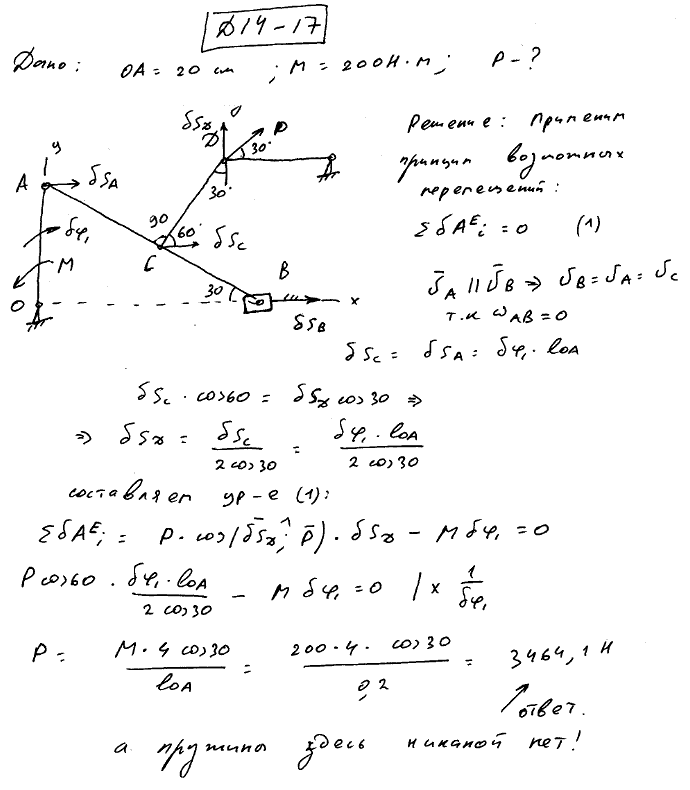 Д14-17
Дано: OA = 20 см ; M = 200 Н·м ; P - ?
δS_D
D
P
30°
30°
y
A
δS_A
δφ₁
M
90
60°
C
δS_C
B
30
O
x
δS_B
Решение: Применим
принцип возможных
перемещений:
Σ δA^E_i = 0 (1)
v̄_A || v̄_B ⇒ v_B = v_A = v_C
т.к ω_AB = 0
δS_C = δS_A = δφ₁ · l_OA
δS_C · cos60 = δS_D cos30 ⇒
⇒ δS_D = δS_C / (2 cos30) = δφ₁ · l_OA / (2 cos30)
составляем ур-е (1):
Σ δA^E_i = P · cos(δS̄_D ^; P̄) · δS_D − M δφ₁ = 0
P cos60 · δφ₁ · l_OA / (2 cos30) − M δφ₁ = 0 | × 1/δφ₁
P = M · 4 cos30 / l_OA = 200 · 4 · cos30 / 0,2 = 3464,1 Н
ответ.
а пружины здесь никакой нет!